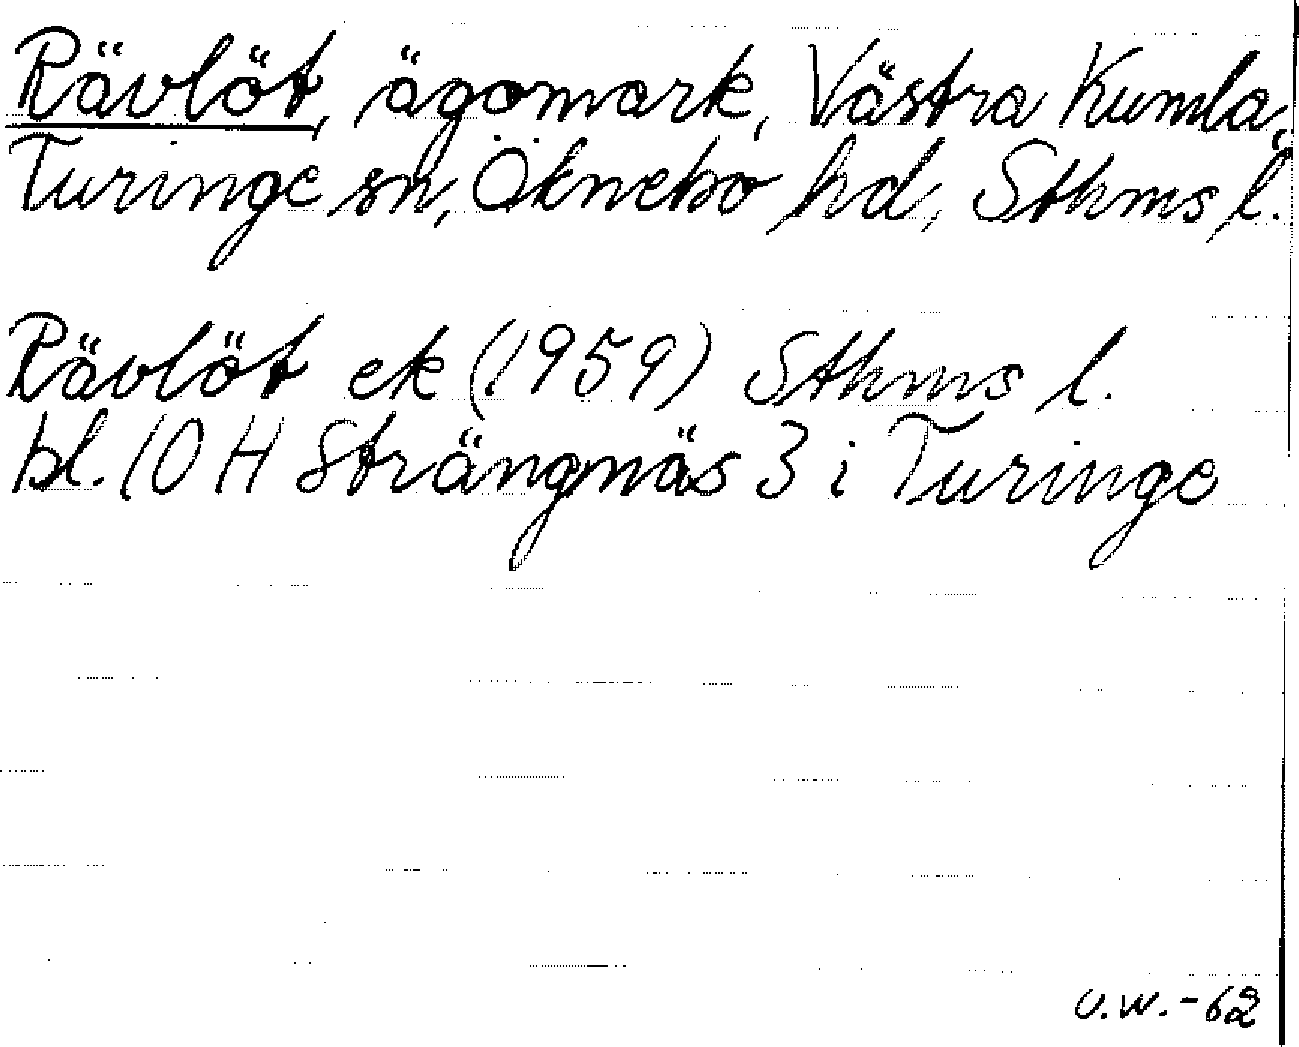 Rävlöt, ägomark, Västra Kumla,
Turinge sn, Öknebo hd, Sthms l.
Rävlöt ek (1959) Sthms l.
bl. 10 H Strängnäs 3 i Turinge
U.W.-62